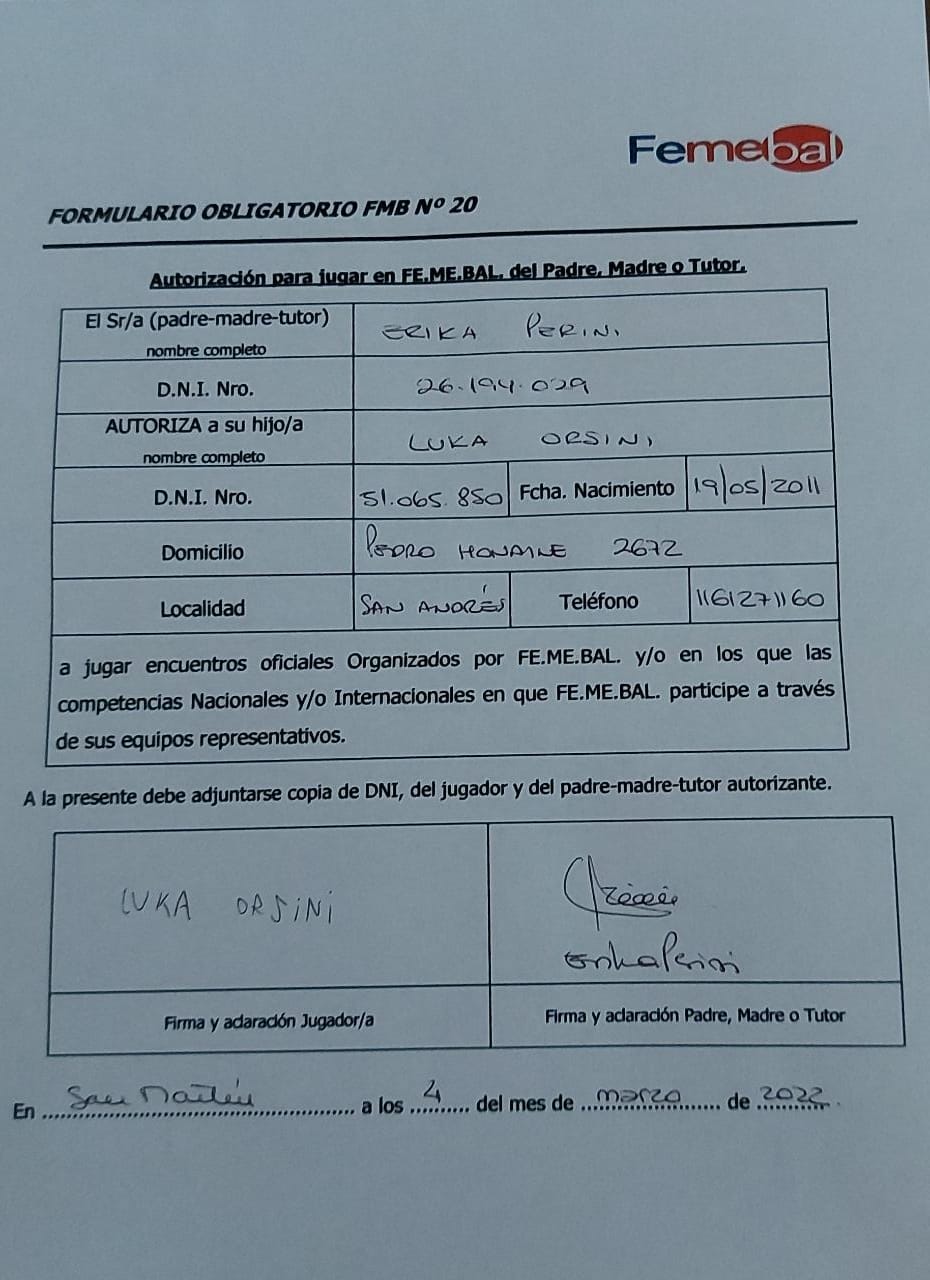 Femebal
FORMULARIO OBLIGATORIO FMB Nº 20
Autorización para jugar en FE.ME.BAL. del Padre, Madre o Tutor.
El Sr/a (padre-madre-tutor)
nombre completo
ERIKA PERINI
D.N.I. Nro.
26.194.029
AUTORIZA a su hijo/a
nombre completo
LUKA ORSINI
D.N.I. Nro.
51.065.850
Fcha. Nacimiento
19/05/2011
Domicilio
PEDRO 2672
Localidad
SAN ANDRÉS
Teléfono
1161271160
a jugar encuentros oficiales Organizados por FE.ME.BAL. y/o en los que las
competencias Nacionales y/o Internacionales en que FE.ME.BAL. participe a través
de sus equipos representativos.
A la presente debe adjuntarse copia de DNI, del jugador y del padre-madre-tutor autorizante.
LUKA ORSINI
Erika Perini
Firma y aclaración Jugador/a
Firma y aclaración Padre, Madre o Tutor
En San Martín a los 4 del mes de marzo de 2022.